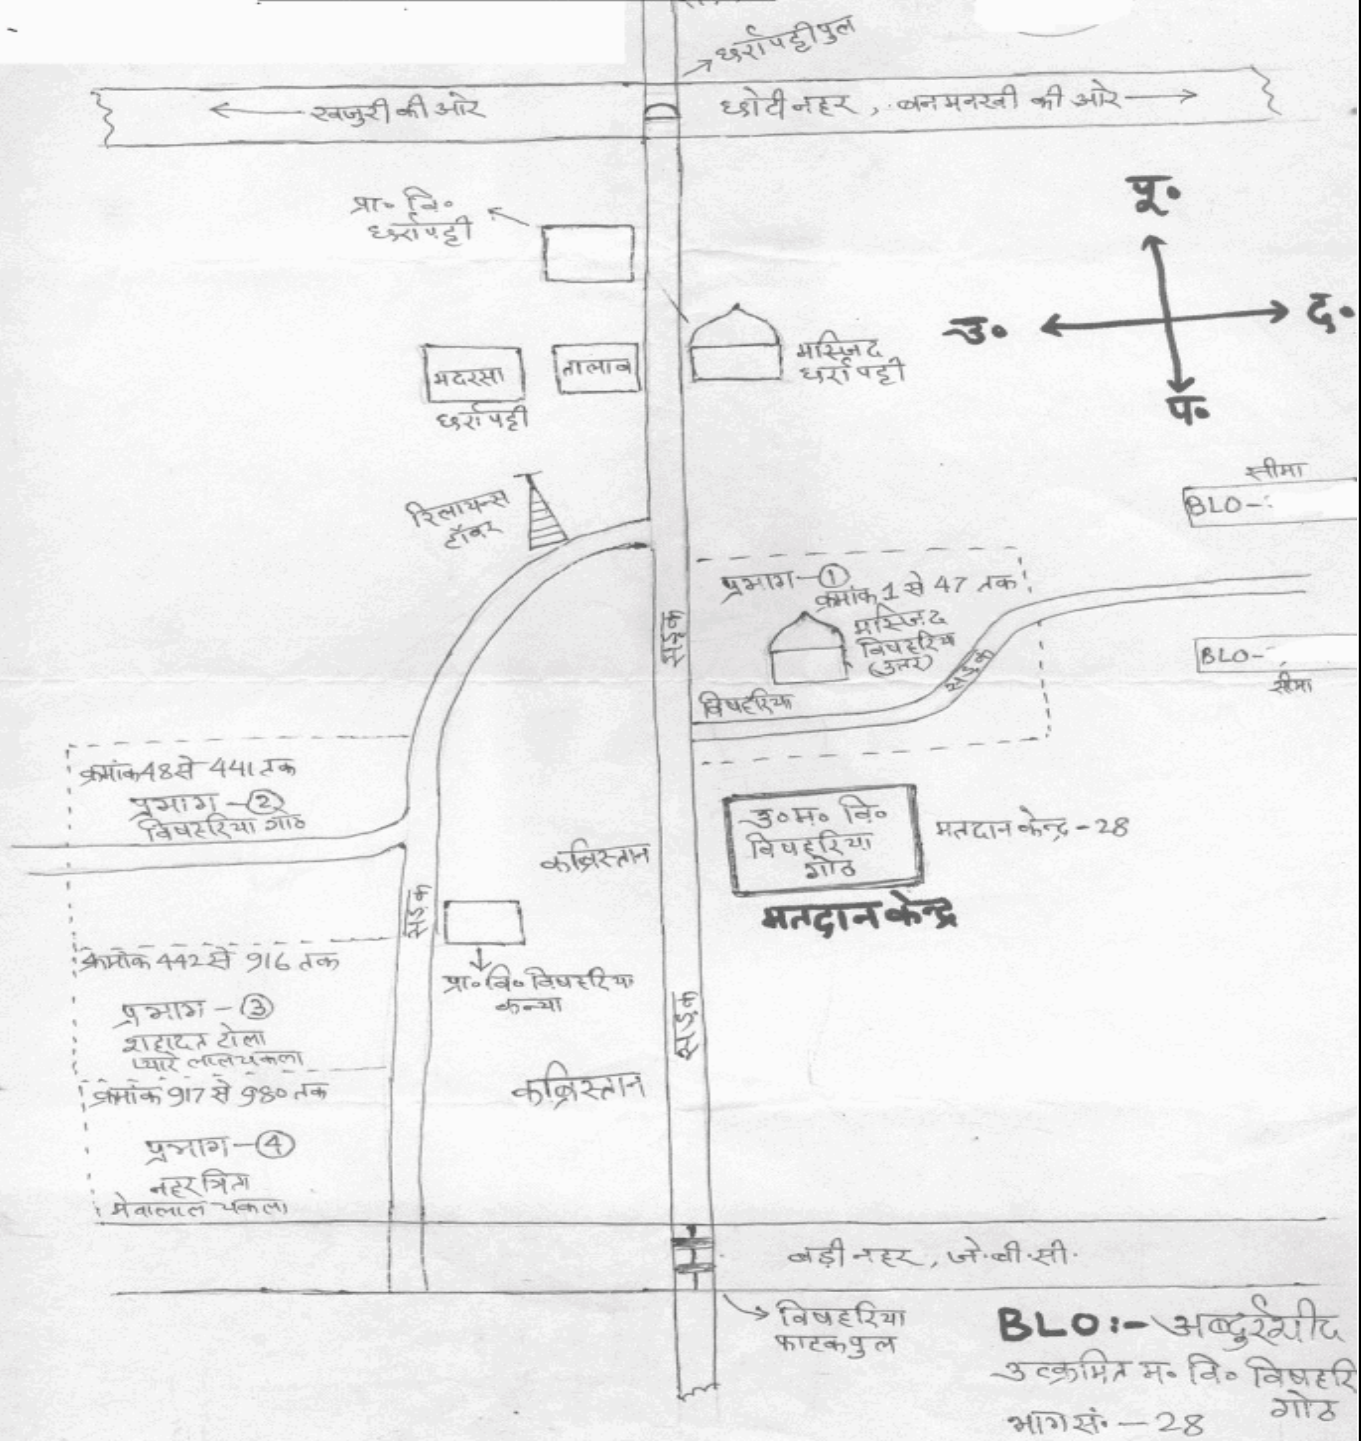 छर्रापट्टी पुल
खजुरी की ओर
छोटी नहर, बनमनखी की ओर
पू॰
उ॰
द॰
प॰
प्रा॰ वि॰
छर्रापट्टी
मदरसा
छर्रापट्टी
तालाब
मस्जिद
छर्रापट्टी
रिलायन्स
टॉवर
सीमा
BLO-:
प्रभाग-①
क्रमांक 1 से 47 तक
मस्जिद
विषहरिया
(उत्तर)
सड़क
विषहरिया
सड़क
BLO-
सीमा
क्रमांक 48 से 441 तक
प्रभाग-②
विषहरिया गोठ
उ॰म॰ वि॰
विषहरिया
गोठ
मतदान केन्द्र-28
मतदान केन्द्र
कब्रिस्तान
सड़क
क्रमांक 442 से 916 तक
प्रभाग-③
शहादत टोला
प्यारे लाल चकला
प्रा॰ वि॰ विषहरिया
कन्या
सड़क
कब्रिस्तान
क्रमांक 917 से 980 तक
प्रभाग-④
नहर
मेवालाल चकला
बड़ी नहर, जे.बी.सी.
विषहरिया
फाटक पुल
BLO:- अब्दुर्रसीद
उत्क्रमित म॰ वि॰ विषहरि
गोठ
भाग सं॰ - 28